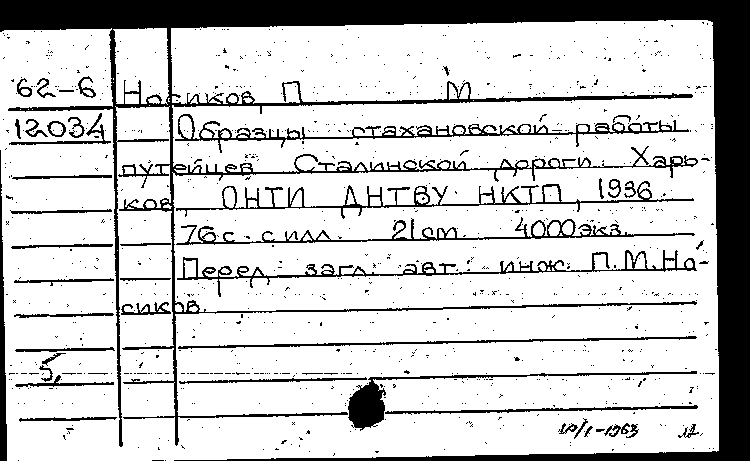 62-6 Носиков, П М
12034 Образцы стахановской работы
путейцев Сталинской дороги. Харь-
ков, ОНТИ ДНТВУ НКТП, 1936.
76 с. с илл. 21 cm. 4000 экз.
Перед загл. авт.: инж. П.М.Но-
сиков.
5,
10/I-1963